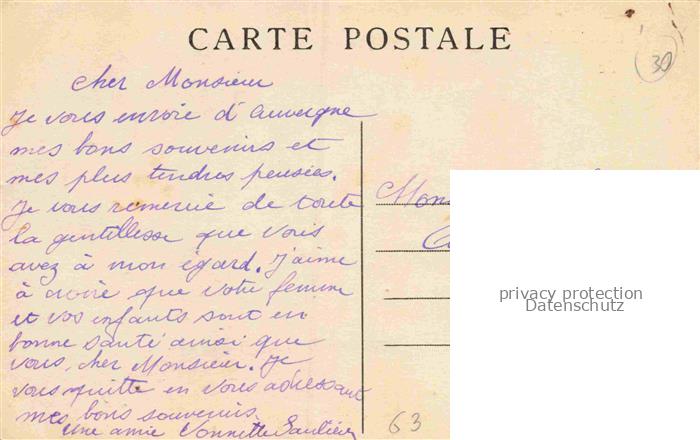 CARTE POSTALE
30
cher Monsieur
Je vous envoie d'Auvergne
mes bons souvenirs et
mes plus tendres pensées.
Je vous remercie de toute
la gentillesse que vous
avez à mon égard. J'aime
à croire que votre femme
et vos enfants sont en
bonne santé ainsi que
vous, cher Monsieur. Je
vous quitte en vous adressant
mes bons souvenirs.
Une amie Vonnette
Mons
privacy protection
Datenschutz
63